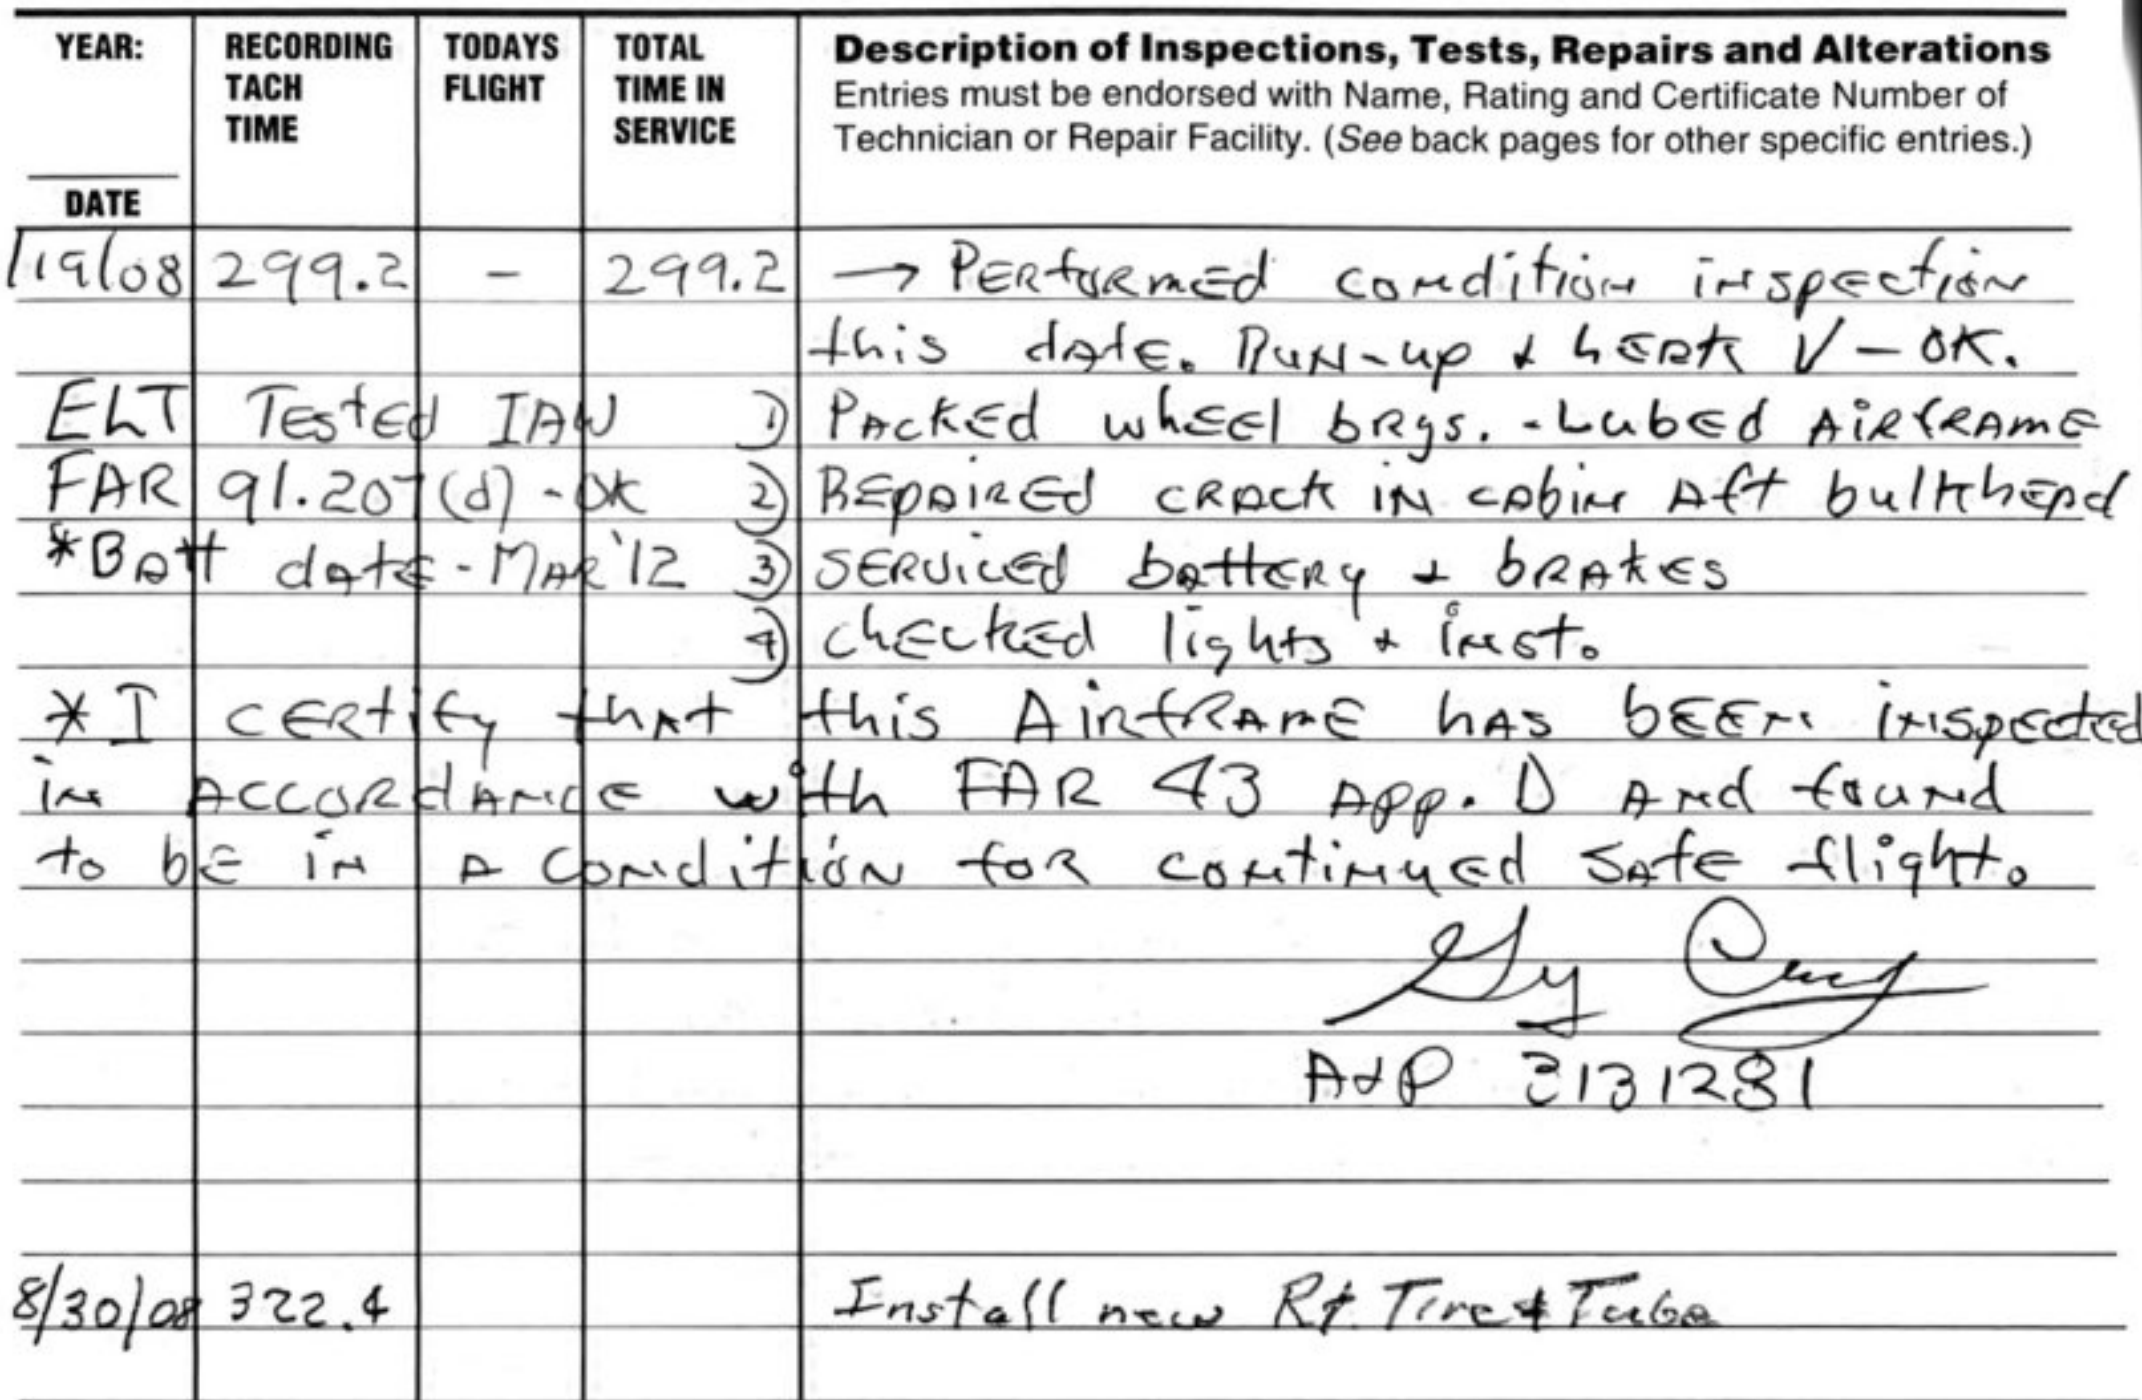 YEAR: RECORDING TACH TIME TODAYS FLIGHT TOTAL TIME IN SERVICE
DATE
Description of Inspections, Tests, Repairs and Alterations
Entries must be endorsed with Name, Rating and Certificate Number of
Technician or Repair Facility. (See back pages for other specific entries.)
/19/08 299.2 - 299.2 → Performed condition inspection
this date. Run-up & leak √ - OK.
ELT Tested IAW 1) Packed wheel brgs. - Lubed Airframe
FAR 91.207(d) - OK 2) Repaired crack in cabin Aft bulkhead
*Batt date - Mar '12 3) Serviced battery & brakes
4) checked lights & inst.
*I certify that this Airframe has been inspected
in accordance with FAR 43 App. D and found
to be in a condition for continued safe flight.
A&P 3131281
8/30/08 322.4 Install new Rt. Tire & Tube